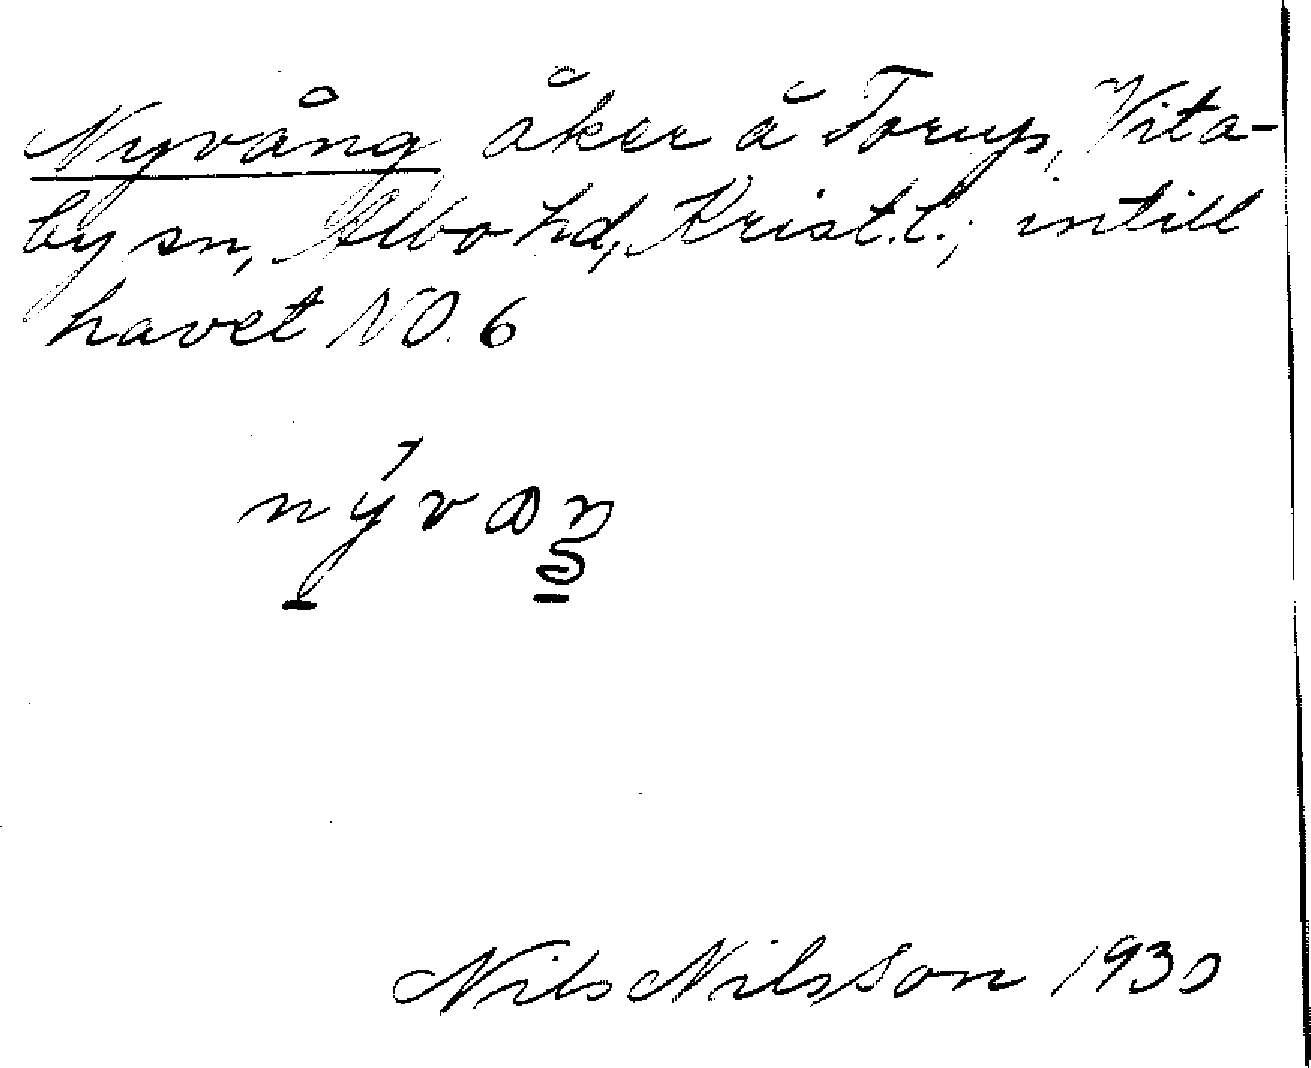 Nyvång åker å Torup, Vita-
by sn, Albo hd, Krist. l.; intill
havet NO. 6
nývaŋ
Nils Nilsson 1930